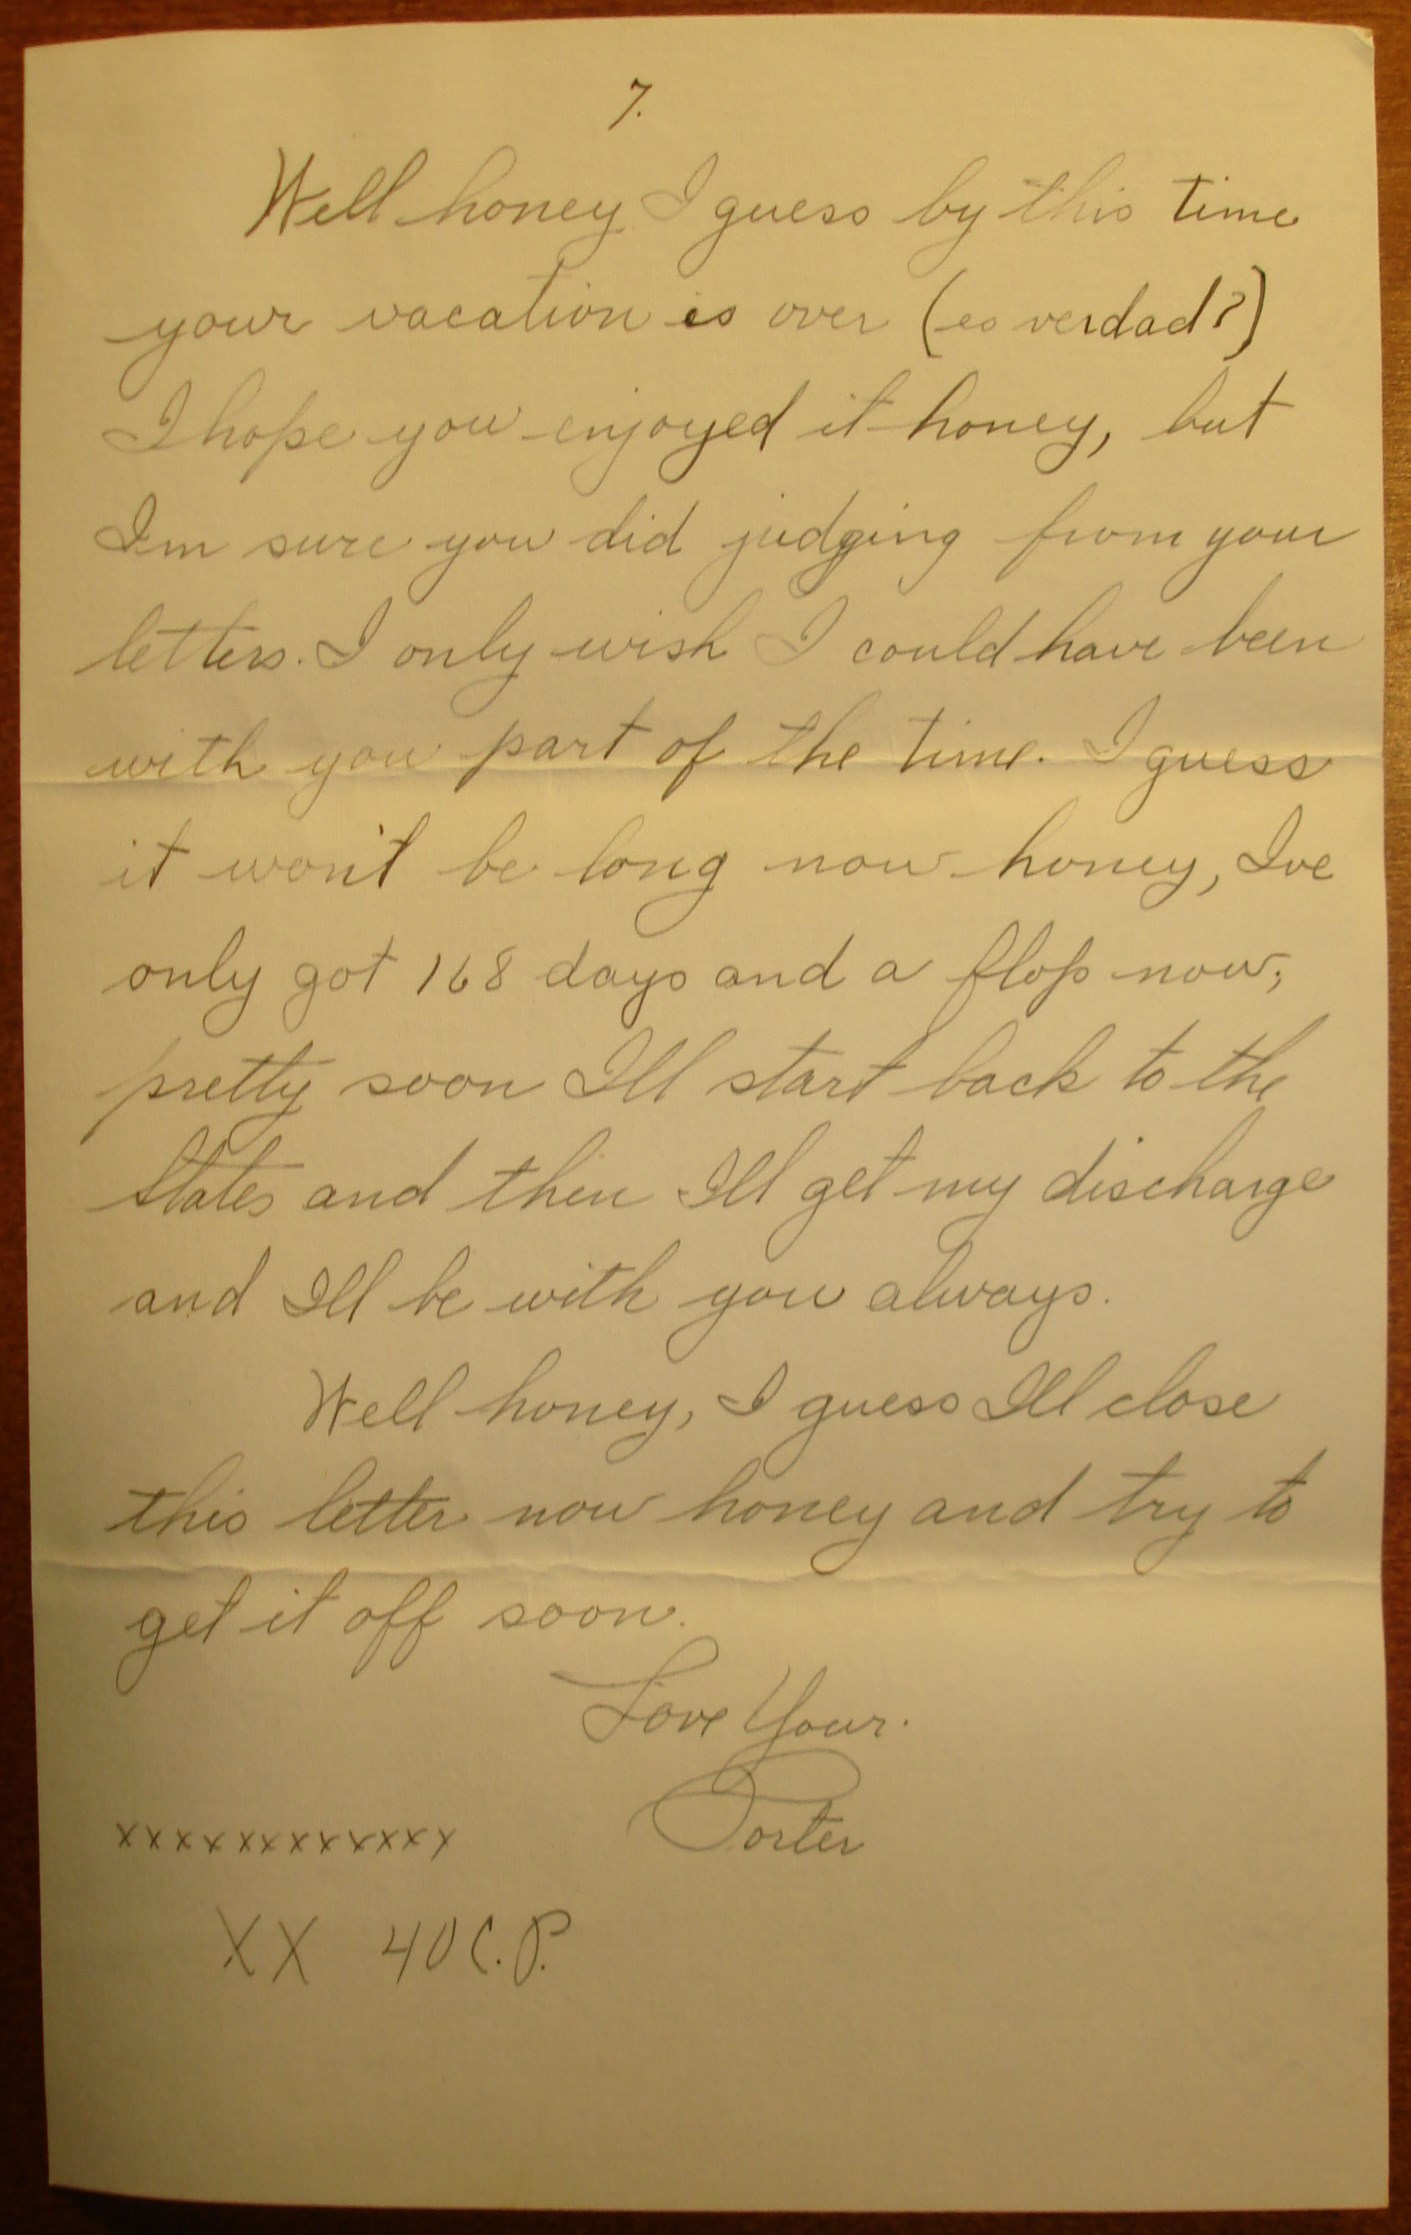 7.
Well honey I guess by this time
your vacation is over (es verdad?)
I hope you enjoyed it honey, but
Im sure you did judging from your
letters. I only wish I could have been
with you part of the time. I guess
it won't be long now honey, Ive
only got 168 days and a flop now,
pretty soon Ill start back to the
States and then Ill get my discharge
and Ill be with you always.
Well honey, I guess Ill close
this letter now honey and try to
get it off soon.
Love Your.
Porter
xxxxxxxxxxxx
XX 40 C.P.